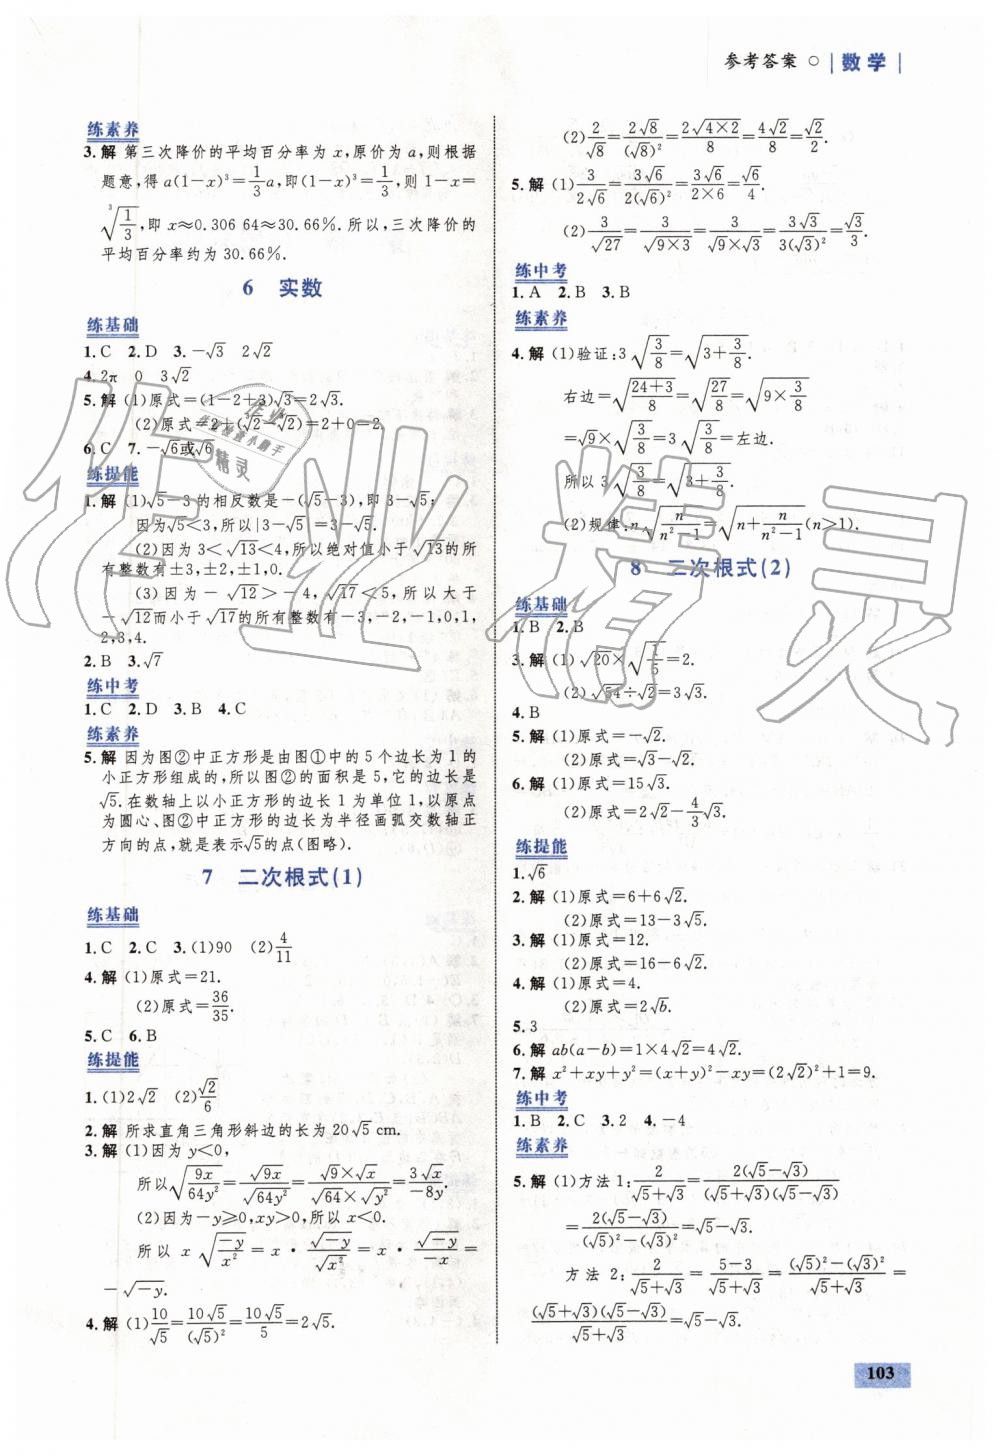 参考答案 ○ 数学
练素养
3. 解 第三次降价的平均百分率为 x,原价为 a,则根据
题意,得 a(1-x)³=1/3a,即(1-x)³=1/3,则 1-x=
∛(1/3),即 x≈0.306 64≈30.66%.所以,三次降价的
平均百分率约为 30.66%.
6 实数
练基础
1. C 2. D 3. -√3 2√2
4. 2π 0 3√2
5. 解 (1)原式=(1-2+3)√3=2√3.
(2)原式=2+(√2-√2)=2+0=2.
6. C 7. -√6或√6
练提能
1. 解 (1)√5-3的相反数是-(√5-3),即 3-√5;
因为√5<3,所以|3-√5|=3-√5.
(2)因为 3<√13<4,所以绝对值小于√13的所
有整数有±3,±2,±1,0.
(3)因为-√12>-4,√17<5,所以大于
-√12而小于√17的所有整数有-3,-2,-1,0,1,
2,3,4.
2. B 3. √7
练中考
1. C 2. D 3. B 4. C
练素养
5. 解 因为图②中正方形是由图①中的 5 个边长为 1 的
小正方形组成的,所以图②的面积是 5,它的边长是
√5.在数轴上以小正方形的边长 1 为单位 1,以原点
为圆心、图②中正方形的边长为半径画弧交数轴正
方向的点,就是表示√5的点(图略).
7 二次根式(1)
练基础
1. C 2. C 3. (1)90 (2)4/11
4. 解 (1)原式=21.
(2)原式=36/35.
5. C 6. B
练提能
1. (1)2√2 (2)√2/6
2. 解 所求直角三角形斜边的长为 20√5 cm.
3. 解 (1)因为 y<0,
所以√(9x/64y²)=√(9x)/√(64y²)=(√9×√x)/(√64×√y²)=3√x/-8y.
(2)因为-y≥0,xy>0,所以 x<0.
所以 x√(-y/x²)=x·√(-y)/√(x²)=x·√(-y)/-x=
-√(-y).
4. 解 (1)10/√5=10√5/(√5)²=10√5/5=2√5.
(2)2/√8=2√8/(√8)²=2√(4×2)/8=4√2/8=√2/2.
5. 解 (1)3/2√6=3√6/2(√6)²=3√6/2×6=√6/4.
(2)3/√27=3/√(9×3)=3/(√9×√3)=3√3/3(√3)²=√3/3.
练中考
1. A 2. B 3. B
练素养
4. 解 (1)验证:3√(3/8)=√(3+3/8).
右边=√((24+3)/8)=√(27/8)=√(9×3/8)
=√9×√(3/8)=3√(3/8)=左边.
所以 3√(3/8)=√(3+3/8).
(2)规律:n√(n/(n²-1))=√(n+n/(n²-1))(n>1).
8 二次根式(2)
练基础
1. B 2. B
3. 解 (1)√20×√(1/5)=2.
(2)√54÷√2=3√3.
4. B
5. 解 (1)原式=-√2.
(2)原式=√3-√2.
6. 解 (1)原式=15√3.
(2)原式=2√2-4/3√3.
练提能
1. √6
2. 解 (1)原式=6+6√2.
(2)原式=13-3√5.
3. 解 (1)原式=12.
(2)原式=16-6√2.
4. 解 (1)原式=4.
(2)原式=2√b.
5. 3
6. 解 ab(a-b)=1×4√2=4√2.
7. 解 x²+xy+y²=(x+y)²-xy=(2√2)²+1=9.
练中考
1. B 2. C 3. 2 4. -4
练素养
5. 解 (1)方法 1:2/(√5+√3)=2(√5-√3)/(√5+√3)(√5-√3)
=2(√5-√3)/((√5)²-(√3)²)=√5-√3.
方法 2:2/(√5+√3)=(5-3)/(√5+√3)=((√5)²-(√3)²)/(√5+√3)=
(√5+√3)(√5-√3)/(√5+√3)=√5-√3.
103
作业精灵